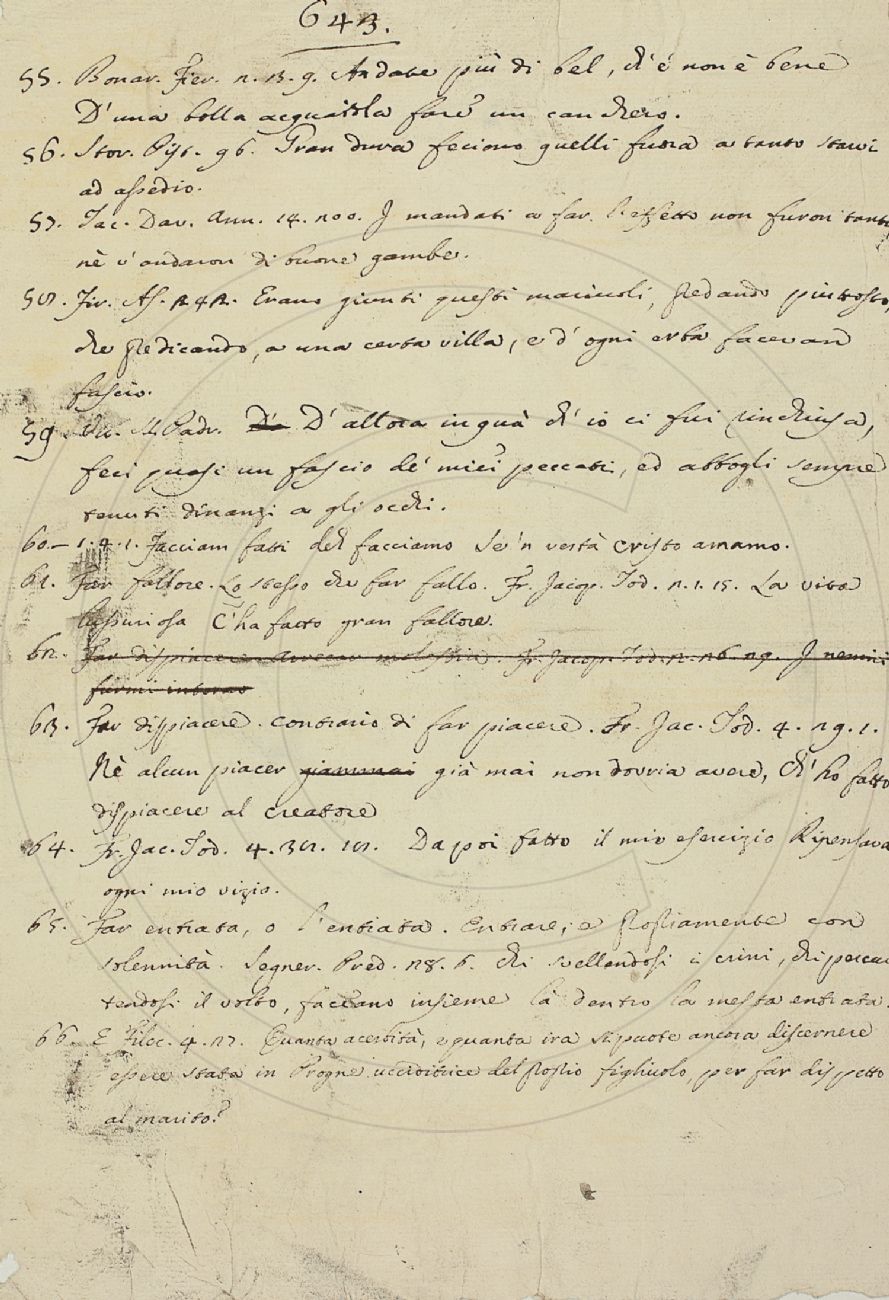 643.
55. Bonar. Fier. 2. 3. 9. Andate più di bel, ch'é non è bene
D'una bolla acquaiola fare un canchero.
56. Stor. Pist. 96. Gran dura feciono quelli fuora a tanto stavi
ad assedio.
57. Tac. Dav. Ann. 14. 200. I mandati a far l'effetto non furon tanti
nè v'andaron di buone gambe.
58. Fir. As. 242. Erano giunti questi mariuoli, predando piuttosto,
che predicando, a una certa villa, e d'ogni erba facevan
fascio.
59. Vit. S. Padr. D' D'allora in quà ch'io ci fui rinchiusa,
feci quasi un fascio de' miei peccati, ed abbogli sempre
tenuti dinanzi a gli occhi.
60.– 1. 4. 1. Facciam fatti deh facciamo Se'n verità Cristo amamo.
61. Far fallore. Lo stesso che far fallo. Fr. Jacop. Tod. 2. 1. 15. La vita
lussuriosa C'ha fatto gran fallore.
62. Far dispiacere Arrecar molestia. Fr. Jacop. Tod. 2. 26. 29. I nemici
furmi intorno
63. Far dispiacere. contrario di far piacere. Fr. Jac. Tod. 4. 29. 1.
Nè alcun piacer giammai già mai non dovria avere, Ch'ho fatto
dispiacere al creatore
64. Fr. Jac. Tod. 4. 38. 18. Dapoi fatto il mio esercizio Ripensava
ogni mio vizio.
65. Far entrata, o l'entrata. Entrare, e propriamente con
solennità. Segner. Pred. 28. 6. Chi svellendosi i crini, chi percuo
tendosi il volto, facciano insieme là dentro la mesta entrata.
66. E Filoc. 4. 27. Quanta acerbità, e quanta ira si puote ancora discernere
essere stata in Progne ucciditrice del proprio figliuolo, per far dispetto
al marito?